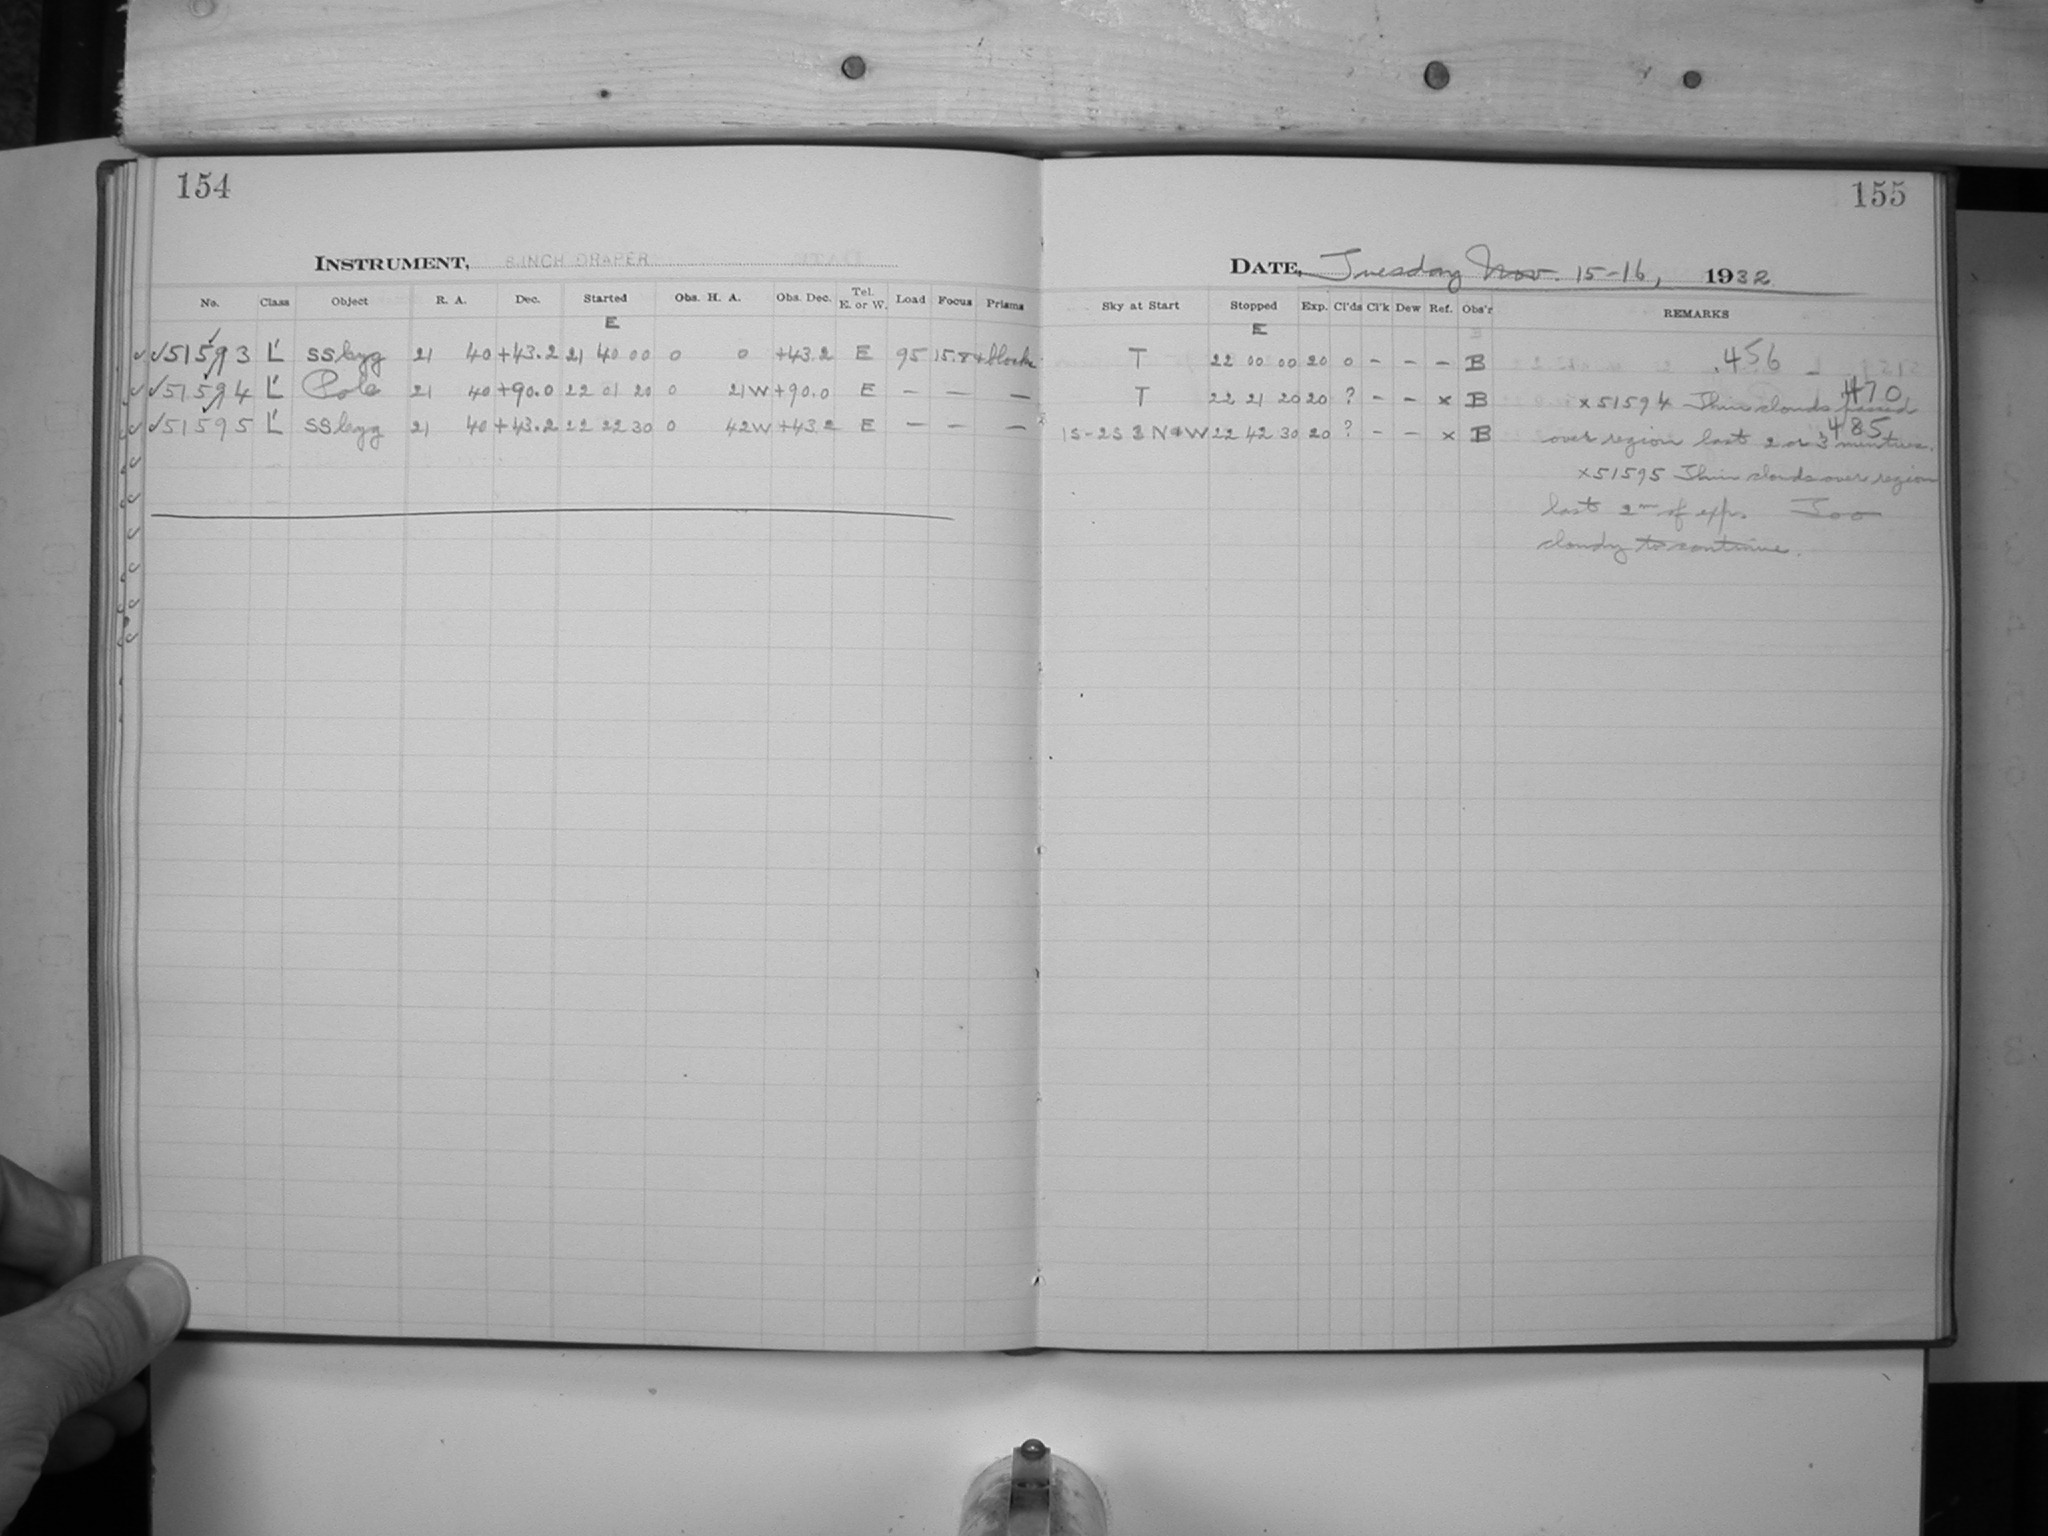 154
INSTRUMENT, 8 INCH DRAPER
No. Class Object R. A. Dec. Started Obs. H. A. Obs. Dec. Tel. E. or W. Load Focus Prisms
E
✓51593 L' SS Cyg 21 40 +43.2 21 40 00 0 0 +43.2 E 95 15.8
✓51594 L' Pole 21 40 +90.0 22 01 20 0 21W +90.0 E — — —
✓51595 L' SS Cyg 21 40 +43.2 22 22 30 0 42W +43.2 E — — —
155
DATE, Tuesday Nov. 15-16, 1932
Sky at Start Stopped Exp. Cl'ds Cl'k Dew Ref. Obs'r REMARKS
E
T 22 00 00 20 0 - - - B .456
T 22 21 20 20 ? - - x B x51594 Thin clouds passed 470
1S-2S N+W 22 42 30 20 ? - - x B over region last 2 or 3 minutes. 485
x51595 Thin clouds over region
last 2m of exp. Too
cloudy to continue.